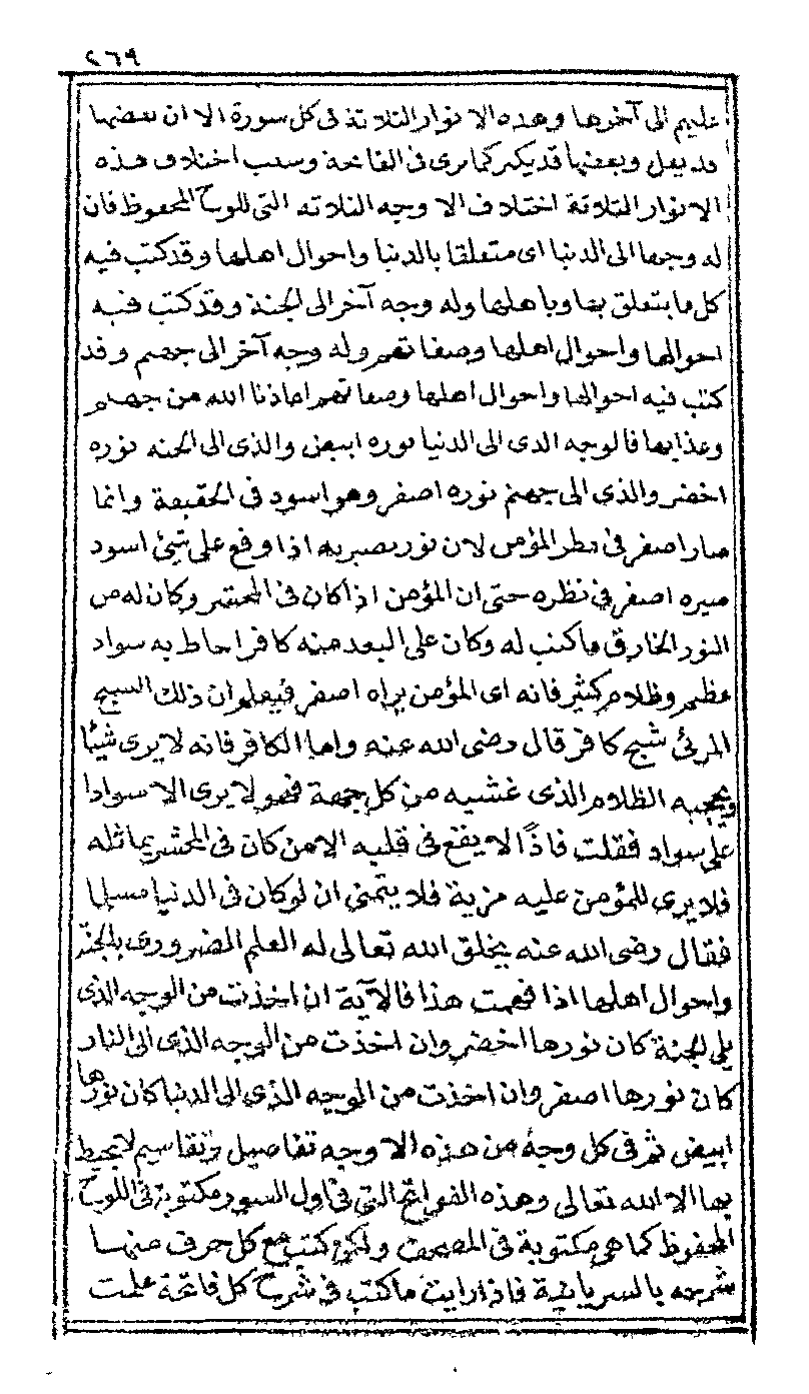 ٢٦٩
عليهم الى آخرها وهذه الا نوار الثلاثة فى كل سورة الا ان بعضها
قد يقل وبعضها قد يكثر كما ترى فى الفاتحة وسبب اختلاف هذه
الانوار الثلاثة اختلاف الا وجه الثلاثه التى للوح المحفوظ فان
له وجها الى الدنيا اى متعلقا بالدنيا واحوال اهلها وقد كتب فيه
كل ما يتعلق بها وباهلها وله وجه آخر الى الجنة وقد كتب فيه
احوالها واحوال اهلها وصفاتهم وله وجه آخر الى جهنم وقد
كتب فيه احوالها واحوال اهلها وصفاتهم اعاذنا الله من جهنم
وعذابها فالوجه الذى الى الدنيا نوره ابيض والذى الى الجنه نوره
اخضر والذى الى جهنم نوره اصفر وهو اسود فى الحقيقة وانما
صار اصفر فى نظر المؤمن لان نور بصيرته اذا وقع على شئ اسود
صيره اصفر فى نظره حتى ان المؤمن اذا كان فى المحشر وكان له من
النور الخارق ما كتب له وكان على البعد منه كافر احاط به سواد
عظيم وظلام كثير فانه اى المؤمن يراه اصفر فيعلم ان ذلك الشبح
المرئى شبح كافر قال رضى الله عنه واما الكافر فانه لا يرى شيئا
ويحجبه الظلام الذى غشيه من كل جهة فهو لا يرى الا سوادا
على سواد فقلت فاذًا لا يقع فى قلبه الا من كان فى المحشر يماثله
فلا يرى للمؤمن عليه مزية فلا يتمنى ان لو كان فى الدنيا مسلما
فقال رضى الله عنه يخلق الله تعالى له العلم الضرورى بالجنة
واحوال اهلها اذا فهمت هذا فالآية ان اخذت من الوجه الذى
يلى الجنة كان نورها اخضر وان اخذت من الوجه الذى الى النار
كان نورها اصفر وان اخذت من الوجه الذى الى الدنيا كان نورها
ابيض ثم فى كل وجه من هذه الا وجه تفاصيل وتقاسيم لا يحيط
بها الا الله تعالى وهذه الفواتح التى فى اول السور مكتوبة فى اللوح
المحفوظ كما هى مكتوبة فى المصحف ولكن كتب مع كل حرف منها
شرحه بالسريانية فاذا رايت ما كتب فى شرح كل فاتحة علمت